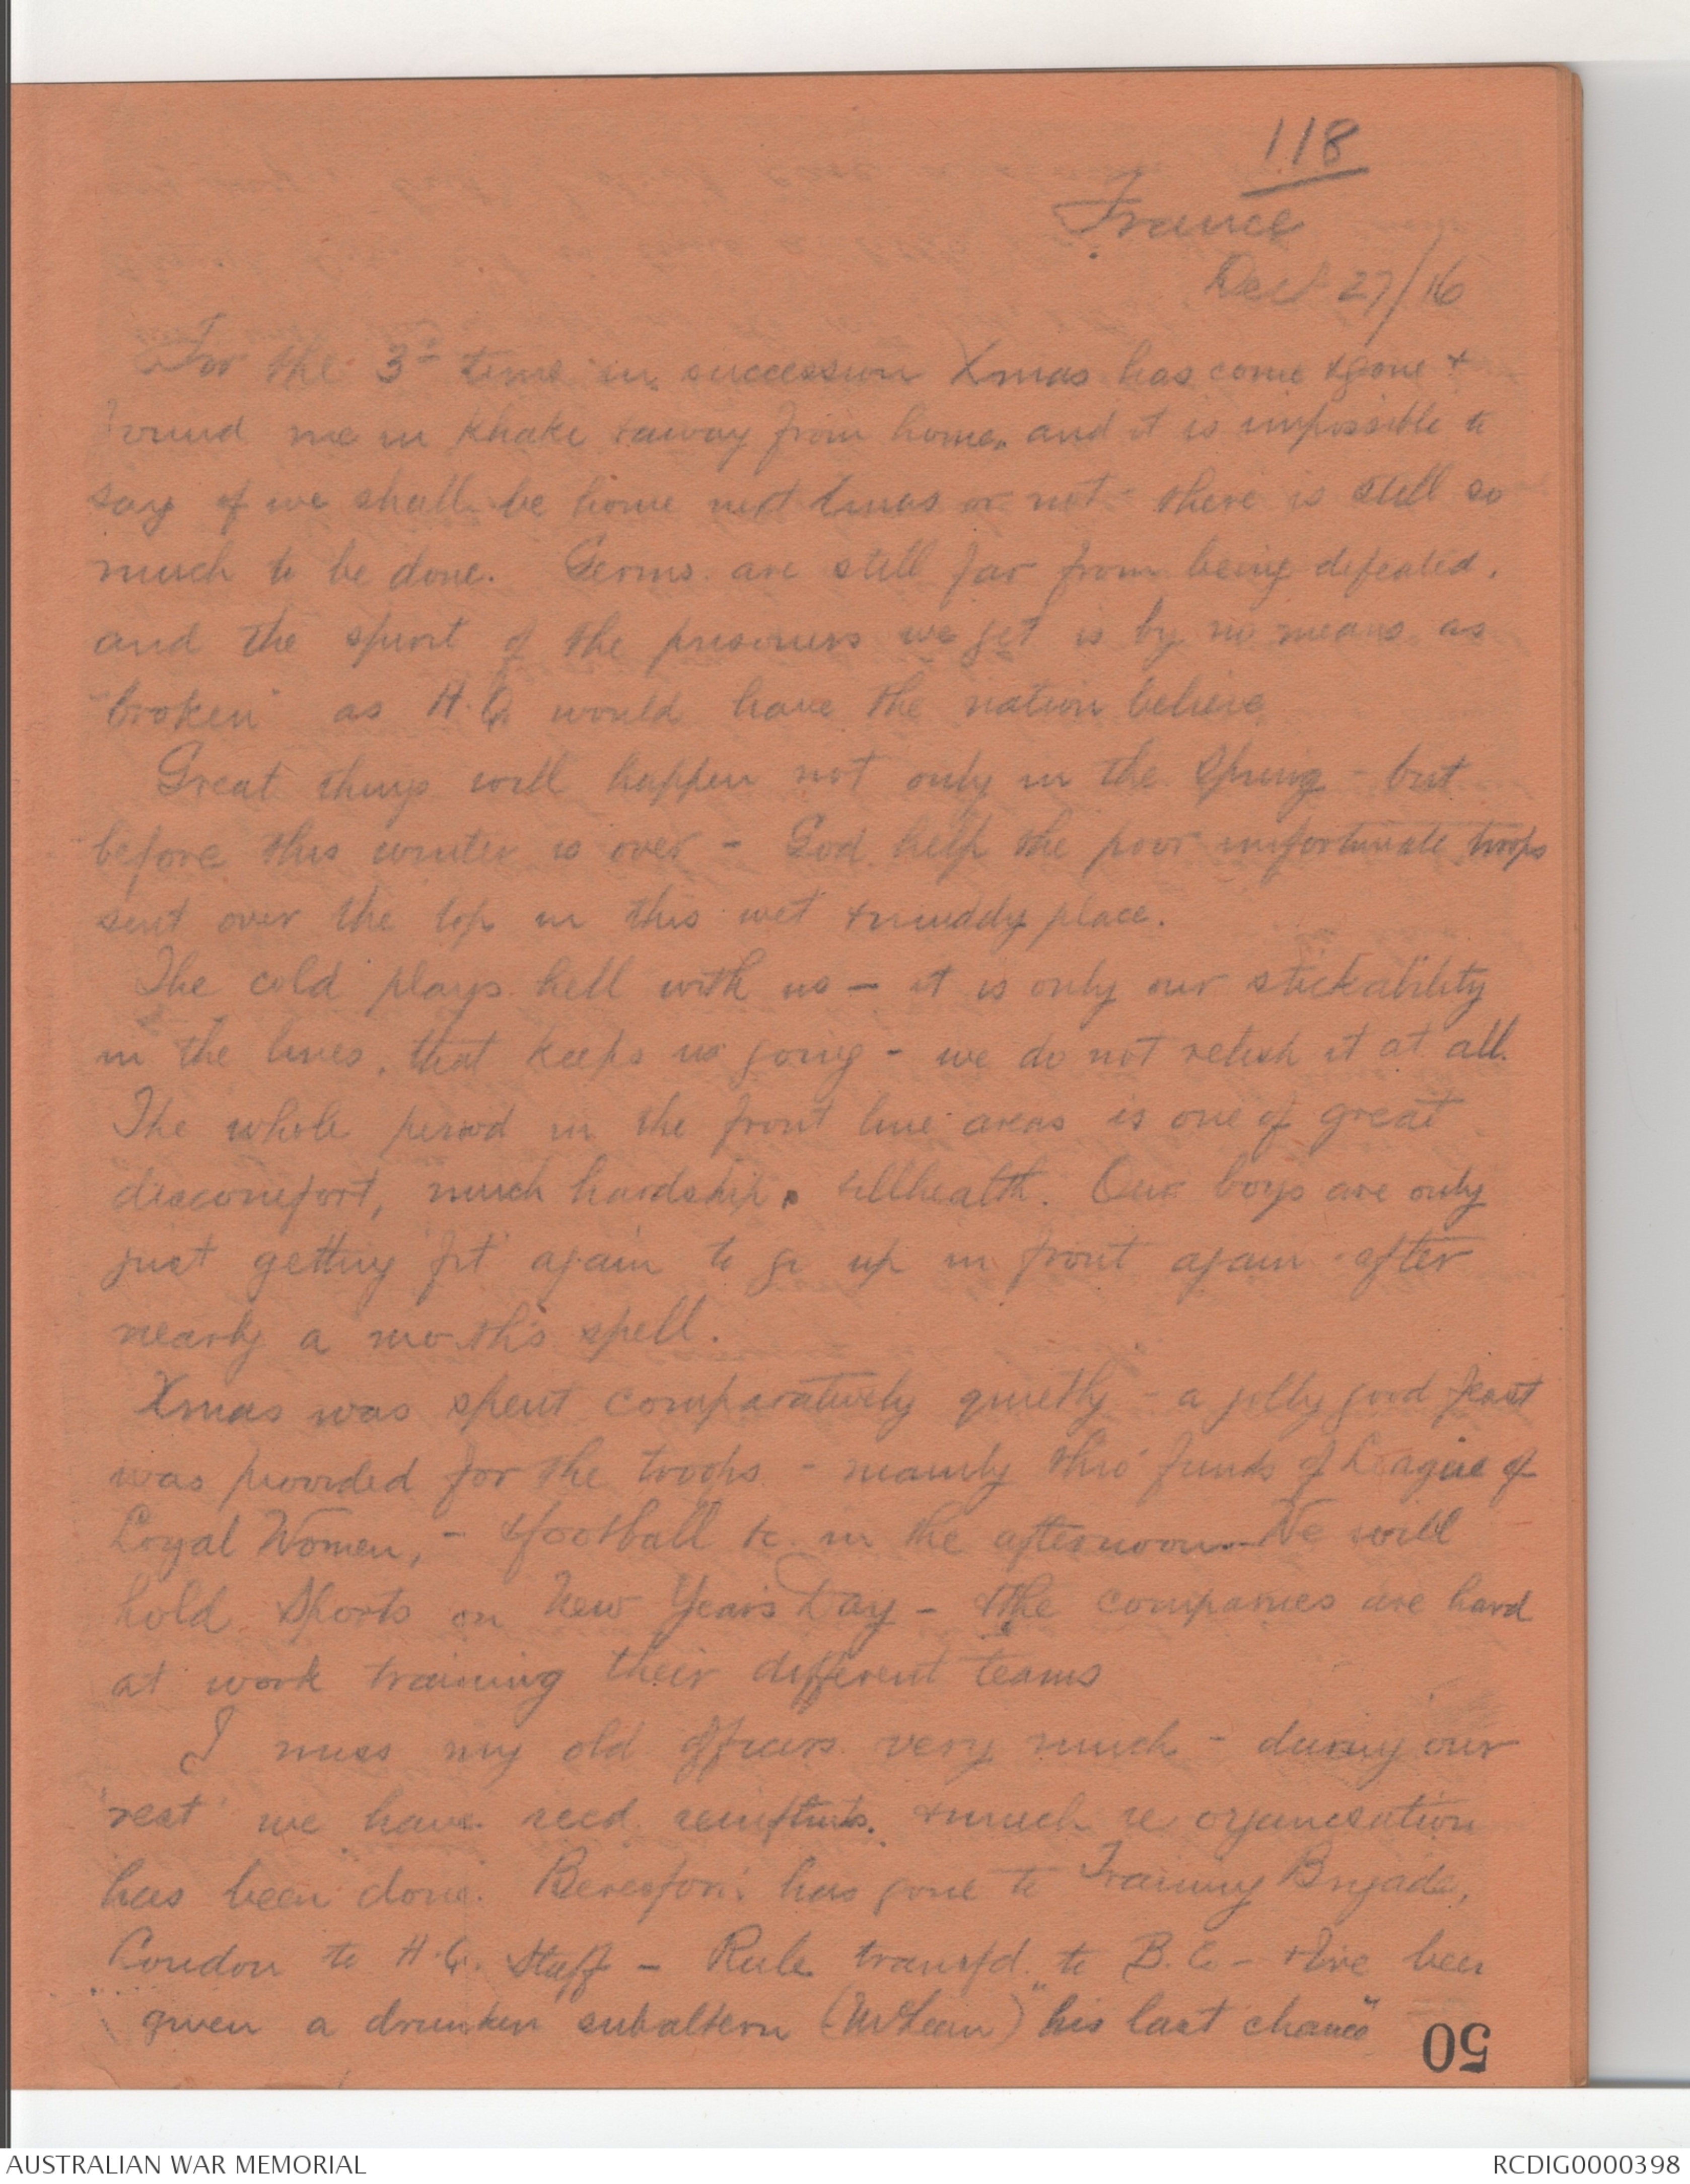 118
France
Dec 27/16
For the 3rd time in succession Xmas has come & gone &
found me in Khake & away from home, and it is impossible to
say if we shall be home next Xmas or not - there is still so
much to be done. Germs. are still far from being defeated,
and the spirit of the prisoners we get is by no means as
"broken" as H.Q. would have the nation believe
Great things will happen not only in the Spring - but
before this winter is over - God help the poor unfortunate troops
sent over the top in this wet & muddy place.
The cold plays hell with us - it is only our stickability
in the lines, that keeps us going - we do not relish it at all.
The whole period in the front line areas is one of great
discomfort, much hardship & illhealth. Our boys are only
just getting 'fit' again to go up in front again after
nearly a month's spell.
Xmas was spent comparatively quietly - a jolly good feast
was provided for the troops - mainly thro' funds of League of
Loyal Women, - & football &c. in the afternoon. We will
hold Sports on New Years Day - & the companies are hard
at work training their different teams
I miss my old officers very much - during our
'rest' we have recd reinftmts. & much re organisation
has been done. has gone to Training Brigade,
to H.Q. Staff - Rule transfd. to B. Co - & I've been
given a drunken subaltern (McLean) "his last chance"
50
AUSTRALIAN WAR MEMORIAL
RCDIG0000398